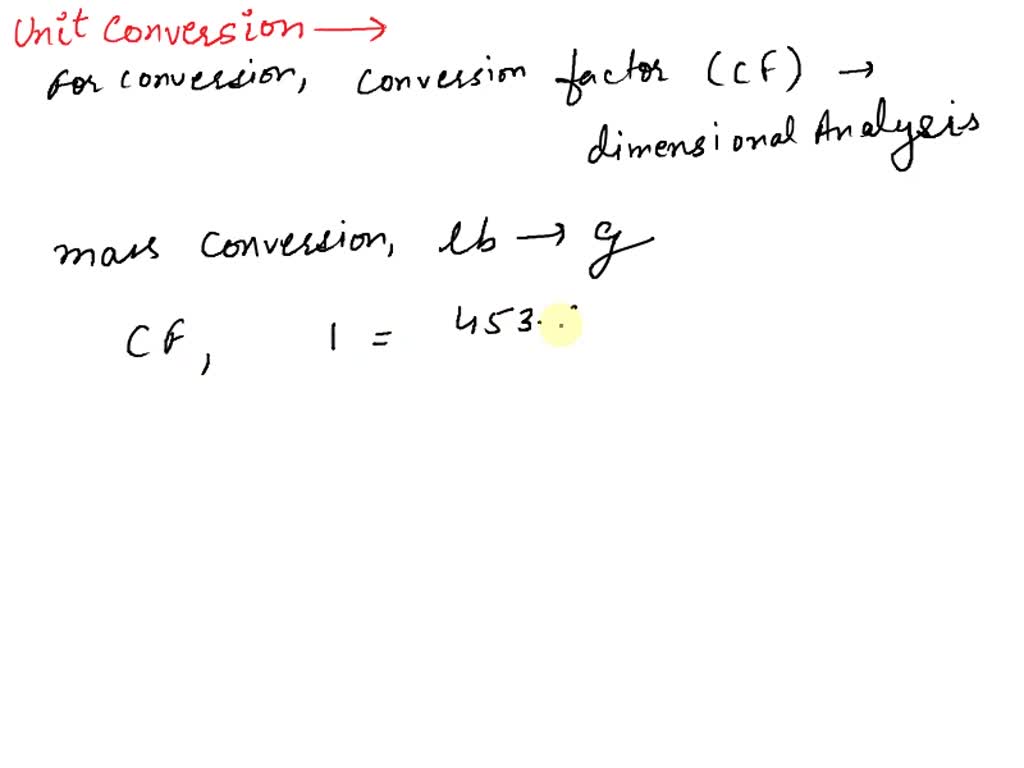 Unit Conversion →
For conversion, conversion factor (CF) →
dimensional Analysis
mass conversion, lb → g
CF, 1 = 453.